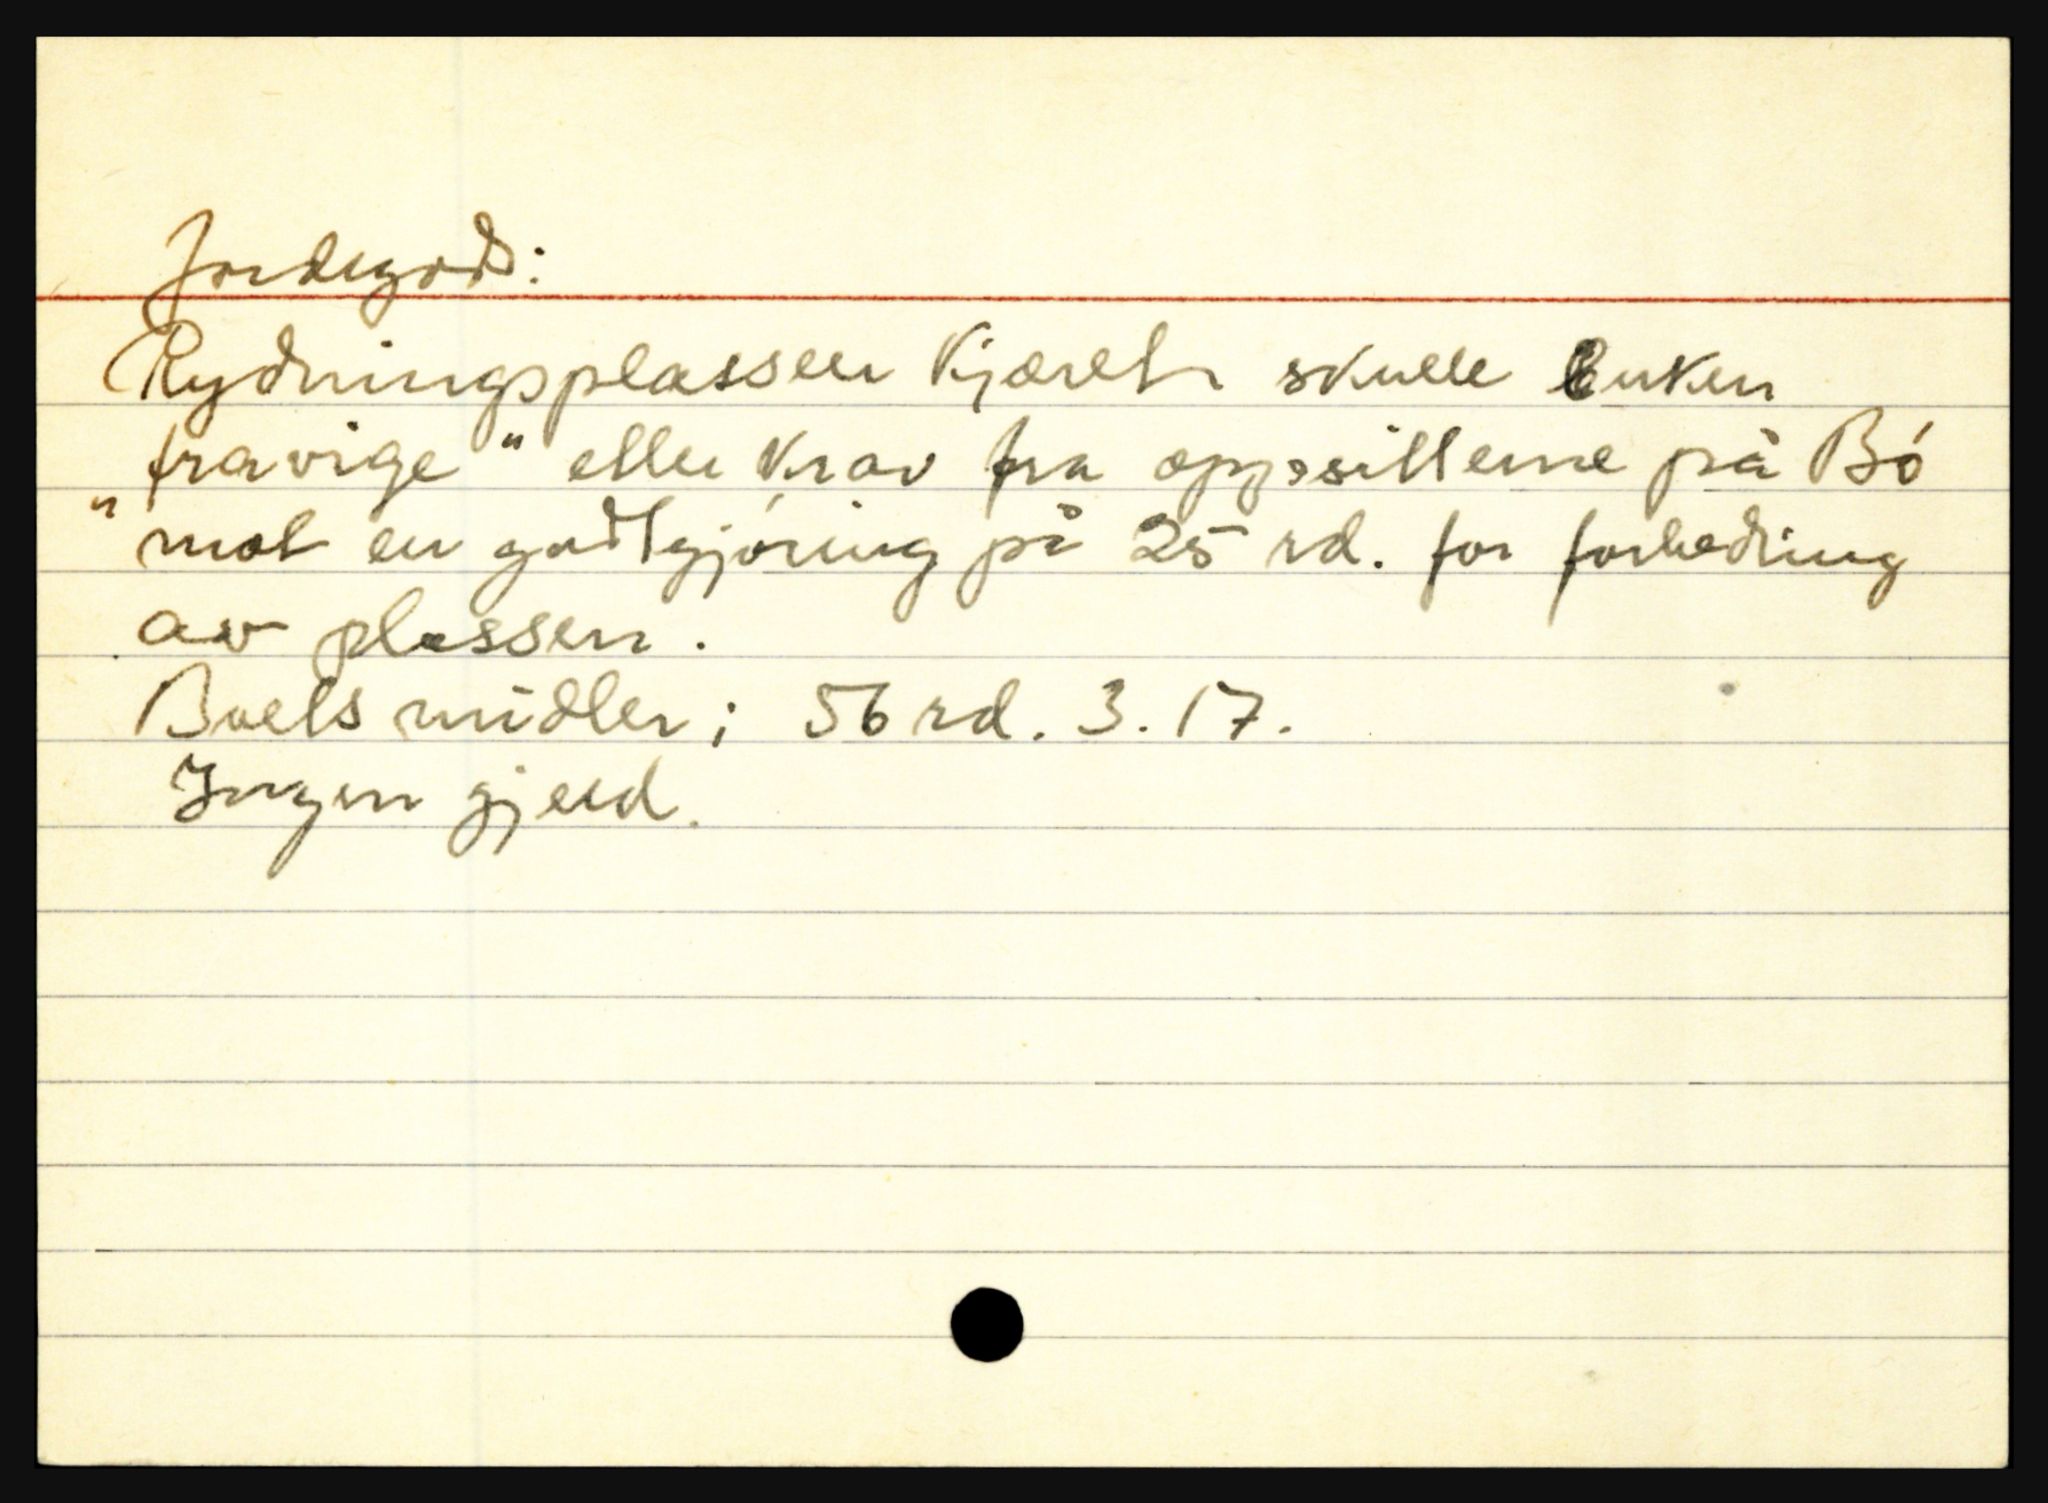 Jordegods:
Rydningsplassen Kjæret skulle enken
fravige" etter krav fra oppsitterne på Bó
" mot en godtgjóring på 25 rd. for forbedring
av plassen.
Boets midler; 56 rd. 3. 17.
Ingen gjeld.